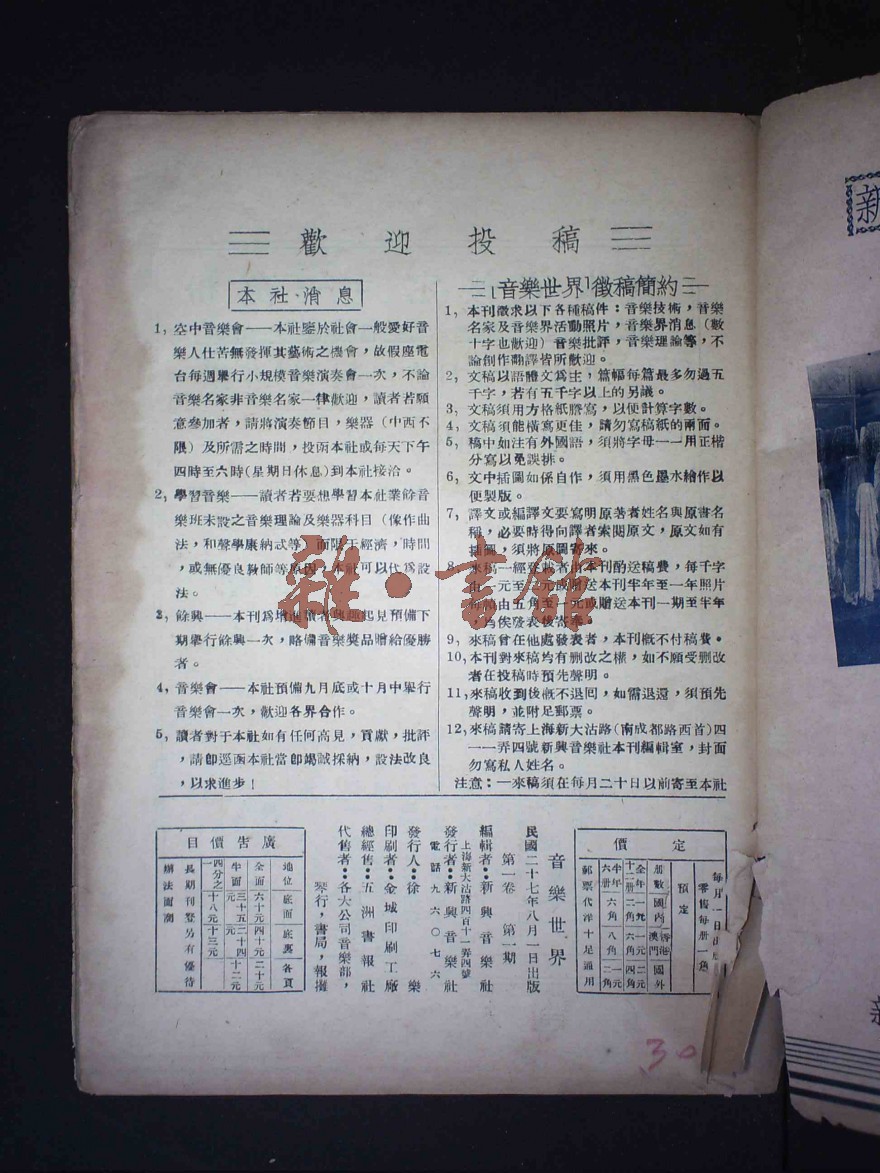 歡迎投稿
本社消息
1，空中音樂會——本社鑒於社會一般愛好音
樂人仕苦無發揮其藝術之機會，故假座電
台每週舉行小規模音樂演奏會一次，不論
音樂名家非音樂名家一律歡迎，讀者若願
意參加者，請將演奏節目，樂器（中西不
限）及所需之時間，投函本社或每天下午
四時至六時（星期日休息）到本社接洽。
2，學習音樂——讀者若要想學習本社業餘音
樂班未設之音樂理論及樂器科目（像作曲
法，和聲學康納式等）而限于經濟，時間
，或無優良教師等原因，本社可以代為設
法。
3，餘興——本刊爲增進讀者興趣起見預備下
期舉行餘興一次，略備音樂獎品贈給優勝
者。
4，音樂會——本社預備九月底或十月中舉行
音樂會一次，歡迎各界合作。
5，讀者對于本社如有任何高見，貢獻，批評
，請卽逕函本社當卽竭誠採納，設法改良
，以求進步！
「音樂世界」徵稿簡約
1，本刊徵求以下各種稿件：音樂技術，音樂
名家及音樂界活動照片，音樂界消息（數
十字也歡迎）音樂批評，音樂理論等，不
論創作翻譯皆所歡迎。
2，文稿以語體文爲主，篇幅每篇最多勿過五
千字，若有五千字以上的另議。
3，文稿須用方格紙謄寫，以便計算字數。
4，文稿須能橫寫更佳，請勿寫稿紙的兩面。
5，稿中如注有外國語，須將字母一一用正楷
分寫以免誤排。
6，文中插圖如係自作，須用黑色墨水繪作以
便製版。
7，譯文或編譯文要寫明原著者姓名與原書名
稱，必要時得向譯者索閱原文，原文如有
插圖，須將原圖寄來。
8，來稿一經登載者由本刊酌送稿費，每千字
由一元至三元或贈送本刊半年至一年照片
每幀由五角至一元或贈送本刊一期至半年
爲俟發表後寄奉。
9，來稿曾在他處發表者，本刊槪不付稿費。
10，本刊對來稿均有刪改之權，如不願受刪改
者在投稿時預先聲明。
11，來稿收到後槪不退囘，如需退還，須預先
聲明，並附足郵票。
12，來稿請寄上海新大沽路（南成都路西首）四
一一弄四號新興音樂社本刊編輯室，封面
勿寫私人姓名。
注意：—來稿須在每月二十日以前寄至本社
定價
每月一日出
零售每册一角
預定
册數 國內 香港澳門 國外
全年十二册 一元二角
半年六册 六角
郵票代洋十足通用
音樂世界
第一卷 第一期
民國二十七年八月一日出版
編輯者：新興音樂社
上海新大沽路四百十一弄四號
發行者：新興音樂社
電話九六〇七六
發行人：徐樂
印刷者：金城印刷工廠
總經售：五洲書報社
代售者：各大公司音樂部，
琴行，書局，報攤
廣告價目
地位 底面 底裏 各頁
全面 六十元 四十元 二十元
半面 三十五元 二十四元 十二元
四分之一 十八元 十三元
長期刊登另有優待
辦法面洽
雜·書館
30
新